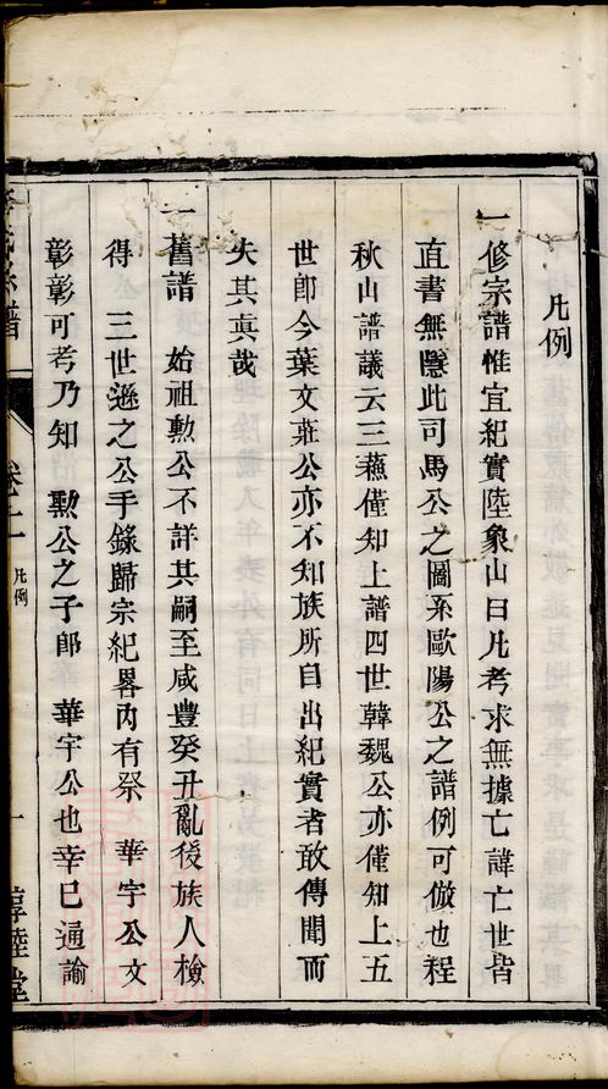 凡例
一修宗譜惟宜紀實陸象山曰凡考求無據亡諱亡世皆
直書無隱此司馬公之圖系歐陽公之譜例可倣也程
秋山譜議云三蘓僅知上譜四世韓魏公亦僅知上五
世卽今葉文莊公亦不知族所自出紀實者敢傳聞而
失其眞哉
一舊譜 始祖勲公不詳其嗣至咸豊癸丑亂後族人檢
得 三世遜之公手錄歸宗紀畧內有祭 華宇公文
彰彰可考乃知 勲公之子郎 華宇公也幸巳通諭
氏宗譜
卷之
凡例
一
惇睦堂